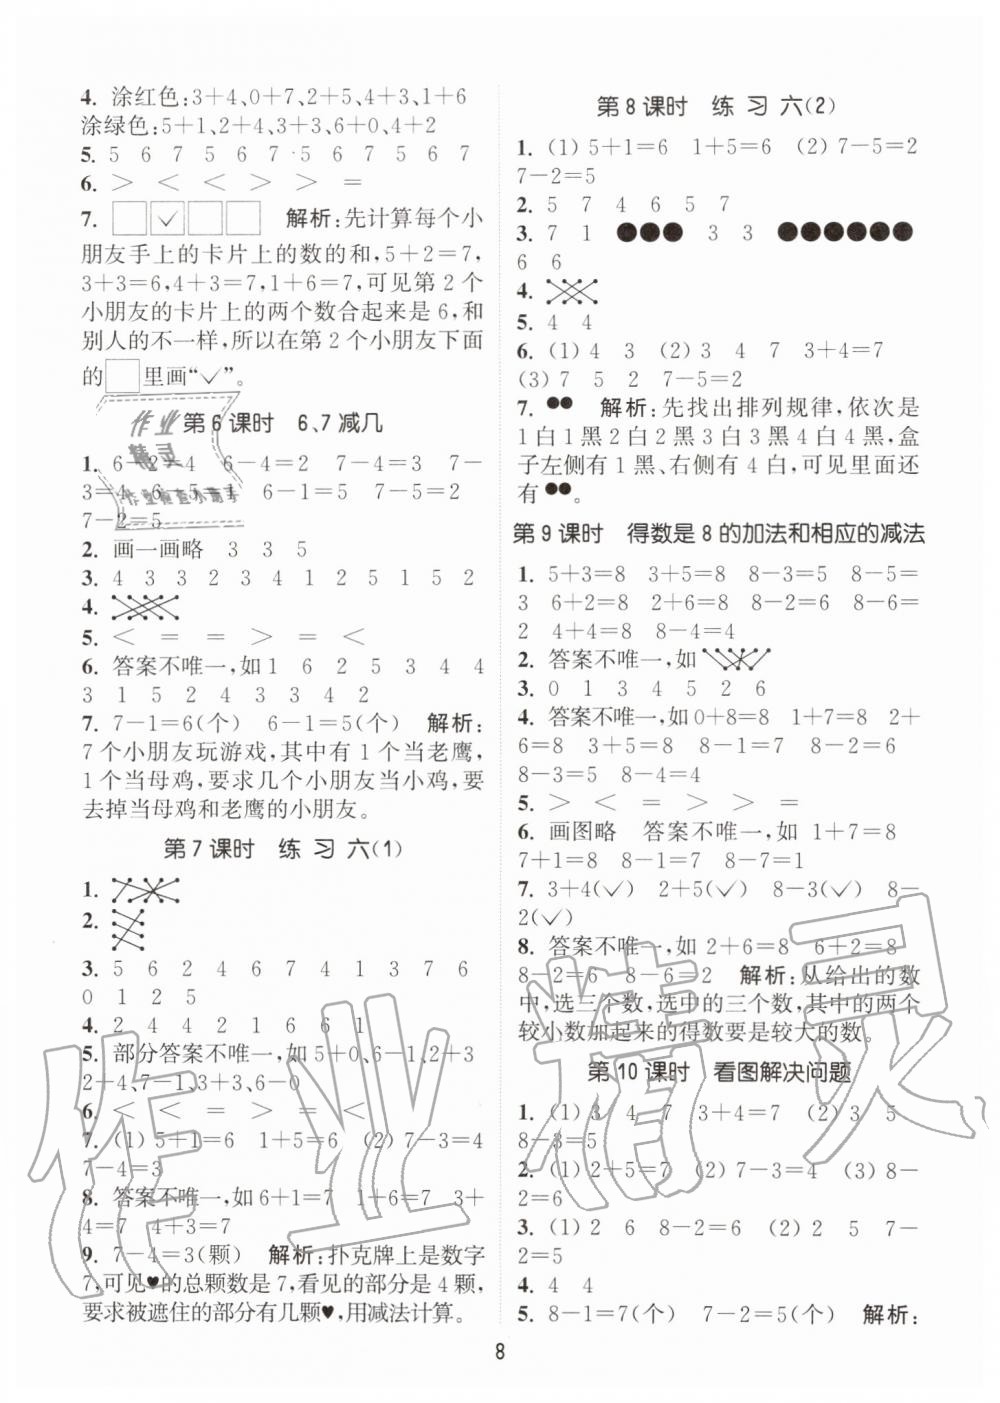 4. 涂红色:3+4、0+7、2+5、4+3、1+6
涂绿色:5+1、2+4、3+3、6+0、4+2
5. 5 6 7 5 6 7 5 6 7 5 6 7
6. > < < > > =
7. ✓ 解析:先计算每个小
朋友手上的卡片上的数的和,5+2=7,
3+3=6,4+3=7,1+6=7,可见第2个
小朋友的卡片上的两个数合起来是6,和
别人的不一样,所以在第2个小朋友下面
的□里画“✓”。
第6课时 6、7减几
1. 6-2=4 6-4=2 7-4=3 7-
3=4 6 5 6-1=5 7-5=2
7-2=5
2. 画一画略 3 3 5
3. 4 3 3 2 3 4 1 2 5 1 5 2
4.
5. < = = > = <
6. 答案不唯一,如 1 6 2 5 3 4 4
3 1 5 2 4 3 3 4 2
7. 7-1=6(个) 6-1=5(个) 解析:
7个小朋友玩游戏,其中有1个当老鹰,
1个当母鸡,要求几个小朋友当小鸡,要
去掉当母鸡和老鹰的小朋友。
第7课时 练习六(1)
1.
2.
3. 5 6 2 4 6 7 4 1 3 7 6
0 1 2 5
4. 2 4 4 2 1 6 6 1
5. 部分答案不唯一,如 5+0、6-1、2+3
2+4、7-1、3+3、6-0
6. < < = = >
7. (1) 5+1=6 1+5=6 (2) 7-3=4
7-4=3
8. 答案不唯一,如 6+1=7 1+6=7 3+
4=7 4+3=7
9. 7-4=3(颗) 解析:扑克牌上是数字
7,可见♥的总颗数是7,看见的部分是4颗,
要求被遮住的部分有几颗♥,用减法计算。
第8课时 练习六(2)
1. (1) 5+1=6 1+5=6 (2) 7-5=2
7-2=5
2. 5 7 4 6 5 7
3. 7 1 ●●● 3 3 ●●●●●●
6 6
4.
5. 4 4
6. (1) 4 3 (2) 3 4 7 3+4=7
(3) 7 5 2 7-5=2
7. ●● 解析:先找出排列规律,依次是
1白1黑2白2黑3白3黑4白4黑,盒
子左侧有1黑、右侧有4白,可见里面还
有●●。
第9课时 得数是8的加法和相应的减法
1. 5+3=8 3+5=8 8-3=5 8-5=
3 6+2=8 2+6=8 8-2=6 8-6=
2 4+4=8 8-4=4
2. 答案不唯一,如
3. 0 1 3 4 5 2 6
4. 答案不唯一,如 0+8=8 1+7=8 2+
6=8 3+5=8 8-1=7 8-2=6
8-3=5 8-4=4
5. > < = > > =
6. 画图略 答案不唯一,如 1+7=8
7+1=8 8-7=1 8-7=1
7. 3+4(✓) 2+5(✓) 8-3(✓) 8-
2(✓)
8. 答案不唯一,如 2+6=8 6+2=8
8-2=6 8-6=2 解析:从给出的数
中,选三个数,选中的三个数,其中的两个
较小数加起来的得数要是较大的数。
第10课时 看图解决问题
1. (1) 3 4 7 3+4=7 (2) 3 5
8-3=5
2. (1) 2+5=7 (2) 7-3=4 (3) 8-
2=6
3. (1) 2 6 8-2=6 (2) 2 5 7-
2=5
4. 4 4
5. 8-1=7(个) 7-2=5(个) 解析:
8
作业
精灵
作业检查小助手
作业精灵